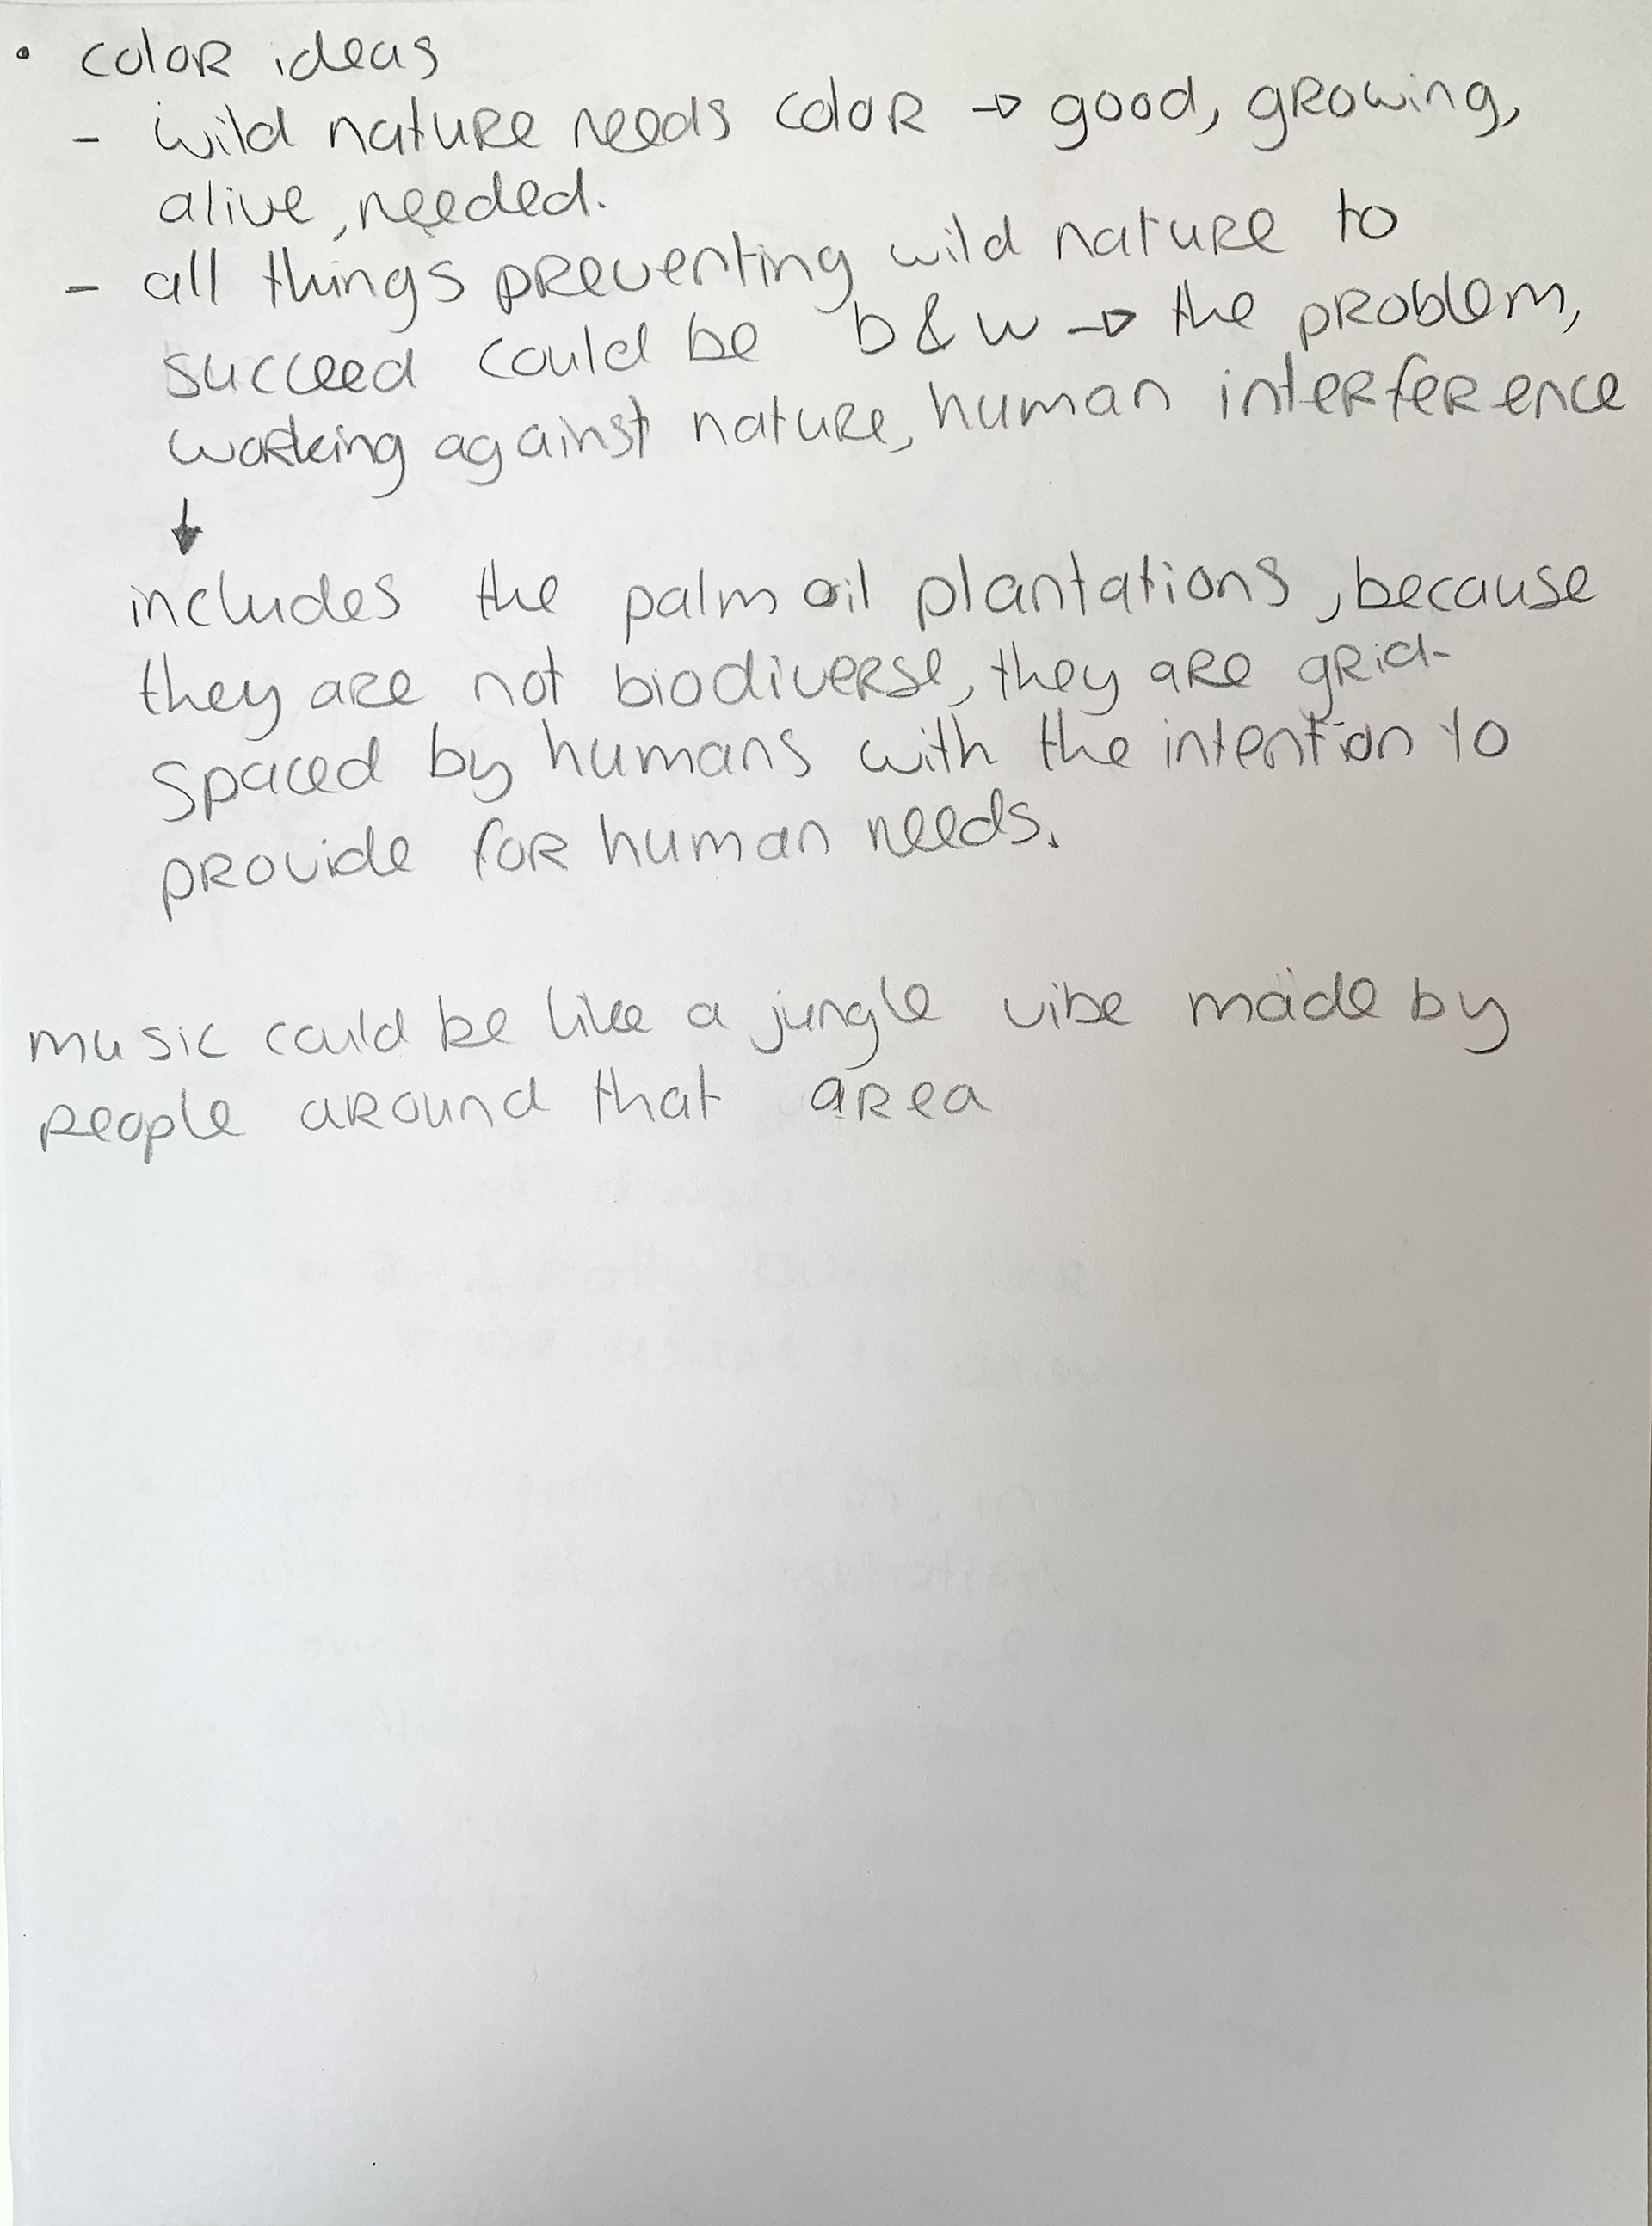 • color ideas
- wild nature needs color → good, growing,
alive, needed.
- all things preventing wild nature to
succeed could be b & w → the problem,
working against nature, human interference
↓
includes the palm oil plantations, because
they are not biodiverse, they are grid-
spaced by humans with the intention to
provide for human needs.
music could be like a jungle vibe made by
people around that area